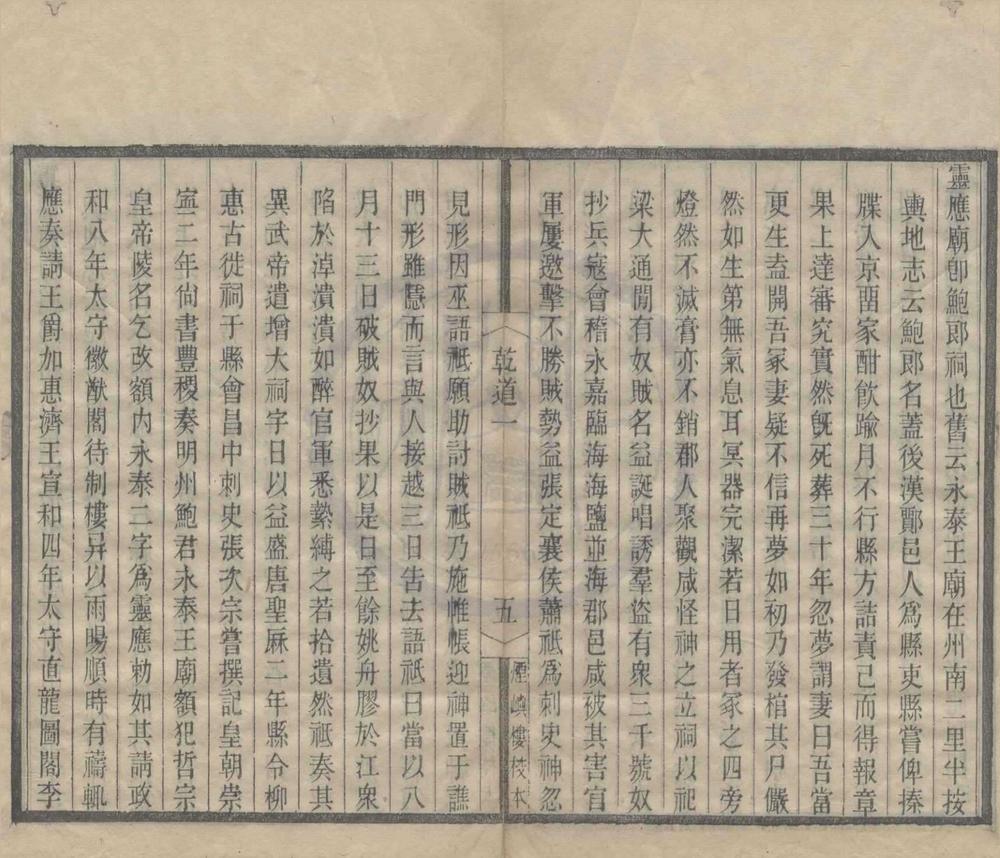 靈應廟卽鮑郎祠也舊云永泰王廟在州南二里半按
輿地志云鮑郎名蓋後漢鄮邑人爲縣吏縣嘗俾捧
牒入京畱家酣飮踰月不行縣方詰責已而得報章
果上達審究實然旣死葬三十年忽夢謂妻曰吾當
更生盍開吾冢妻疑不信再夢如初乃發棺其尸儼
然如生第無氣息耳冥器完潔若日用者冢之四旁
燈然不滅膏亦不銷郡人聚觀咸怪神之立祠以祀
梁大通閒有奴賊名益誕唱誘羣盜有衆三千號奴
抄兵寇會稽永嘉臨海海鹽並海郡邑咸被其害官
軍屢邀擊不勝賊勢益張定襄侯蕭祇爲刺史神忽
乾道一
五
煙嶼樓校本
見形因巫語祇願助討賊祇乃施帷帳迎神置于譙
門形雖隱而言與人接越三日告去語祇曰當以八
月十三日破賊奴抄果以是日至餘姚舟膠於江衆
陷於淖潰潰如醉官軍悉縶縛之若拾遺然祇奏其
異武帝遣增大祠宇日以益盛唐聖厤二年縣令柳
惠古徙祠于縣會昌中刺史張次宗嘗撰記皇朝崇
寍二年尙書豐稷奏明州鮑君永泰王廟額犯哲宗
皇帝陵名乞改額內永泰二字爲靈應勅如其請政
和八年太守徽猷閣待制樓异以雨暘順時有禱輒
應奏請王爵加惠濟王宣和四年太守直龍圖閣李